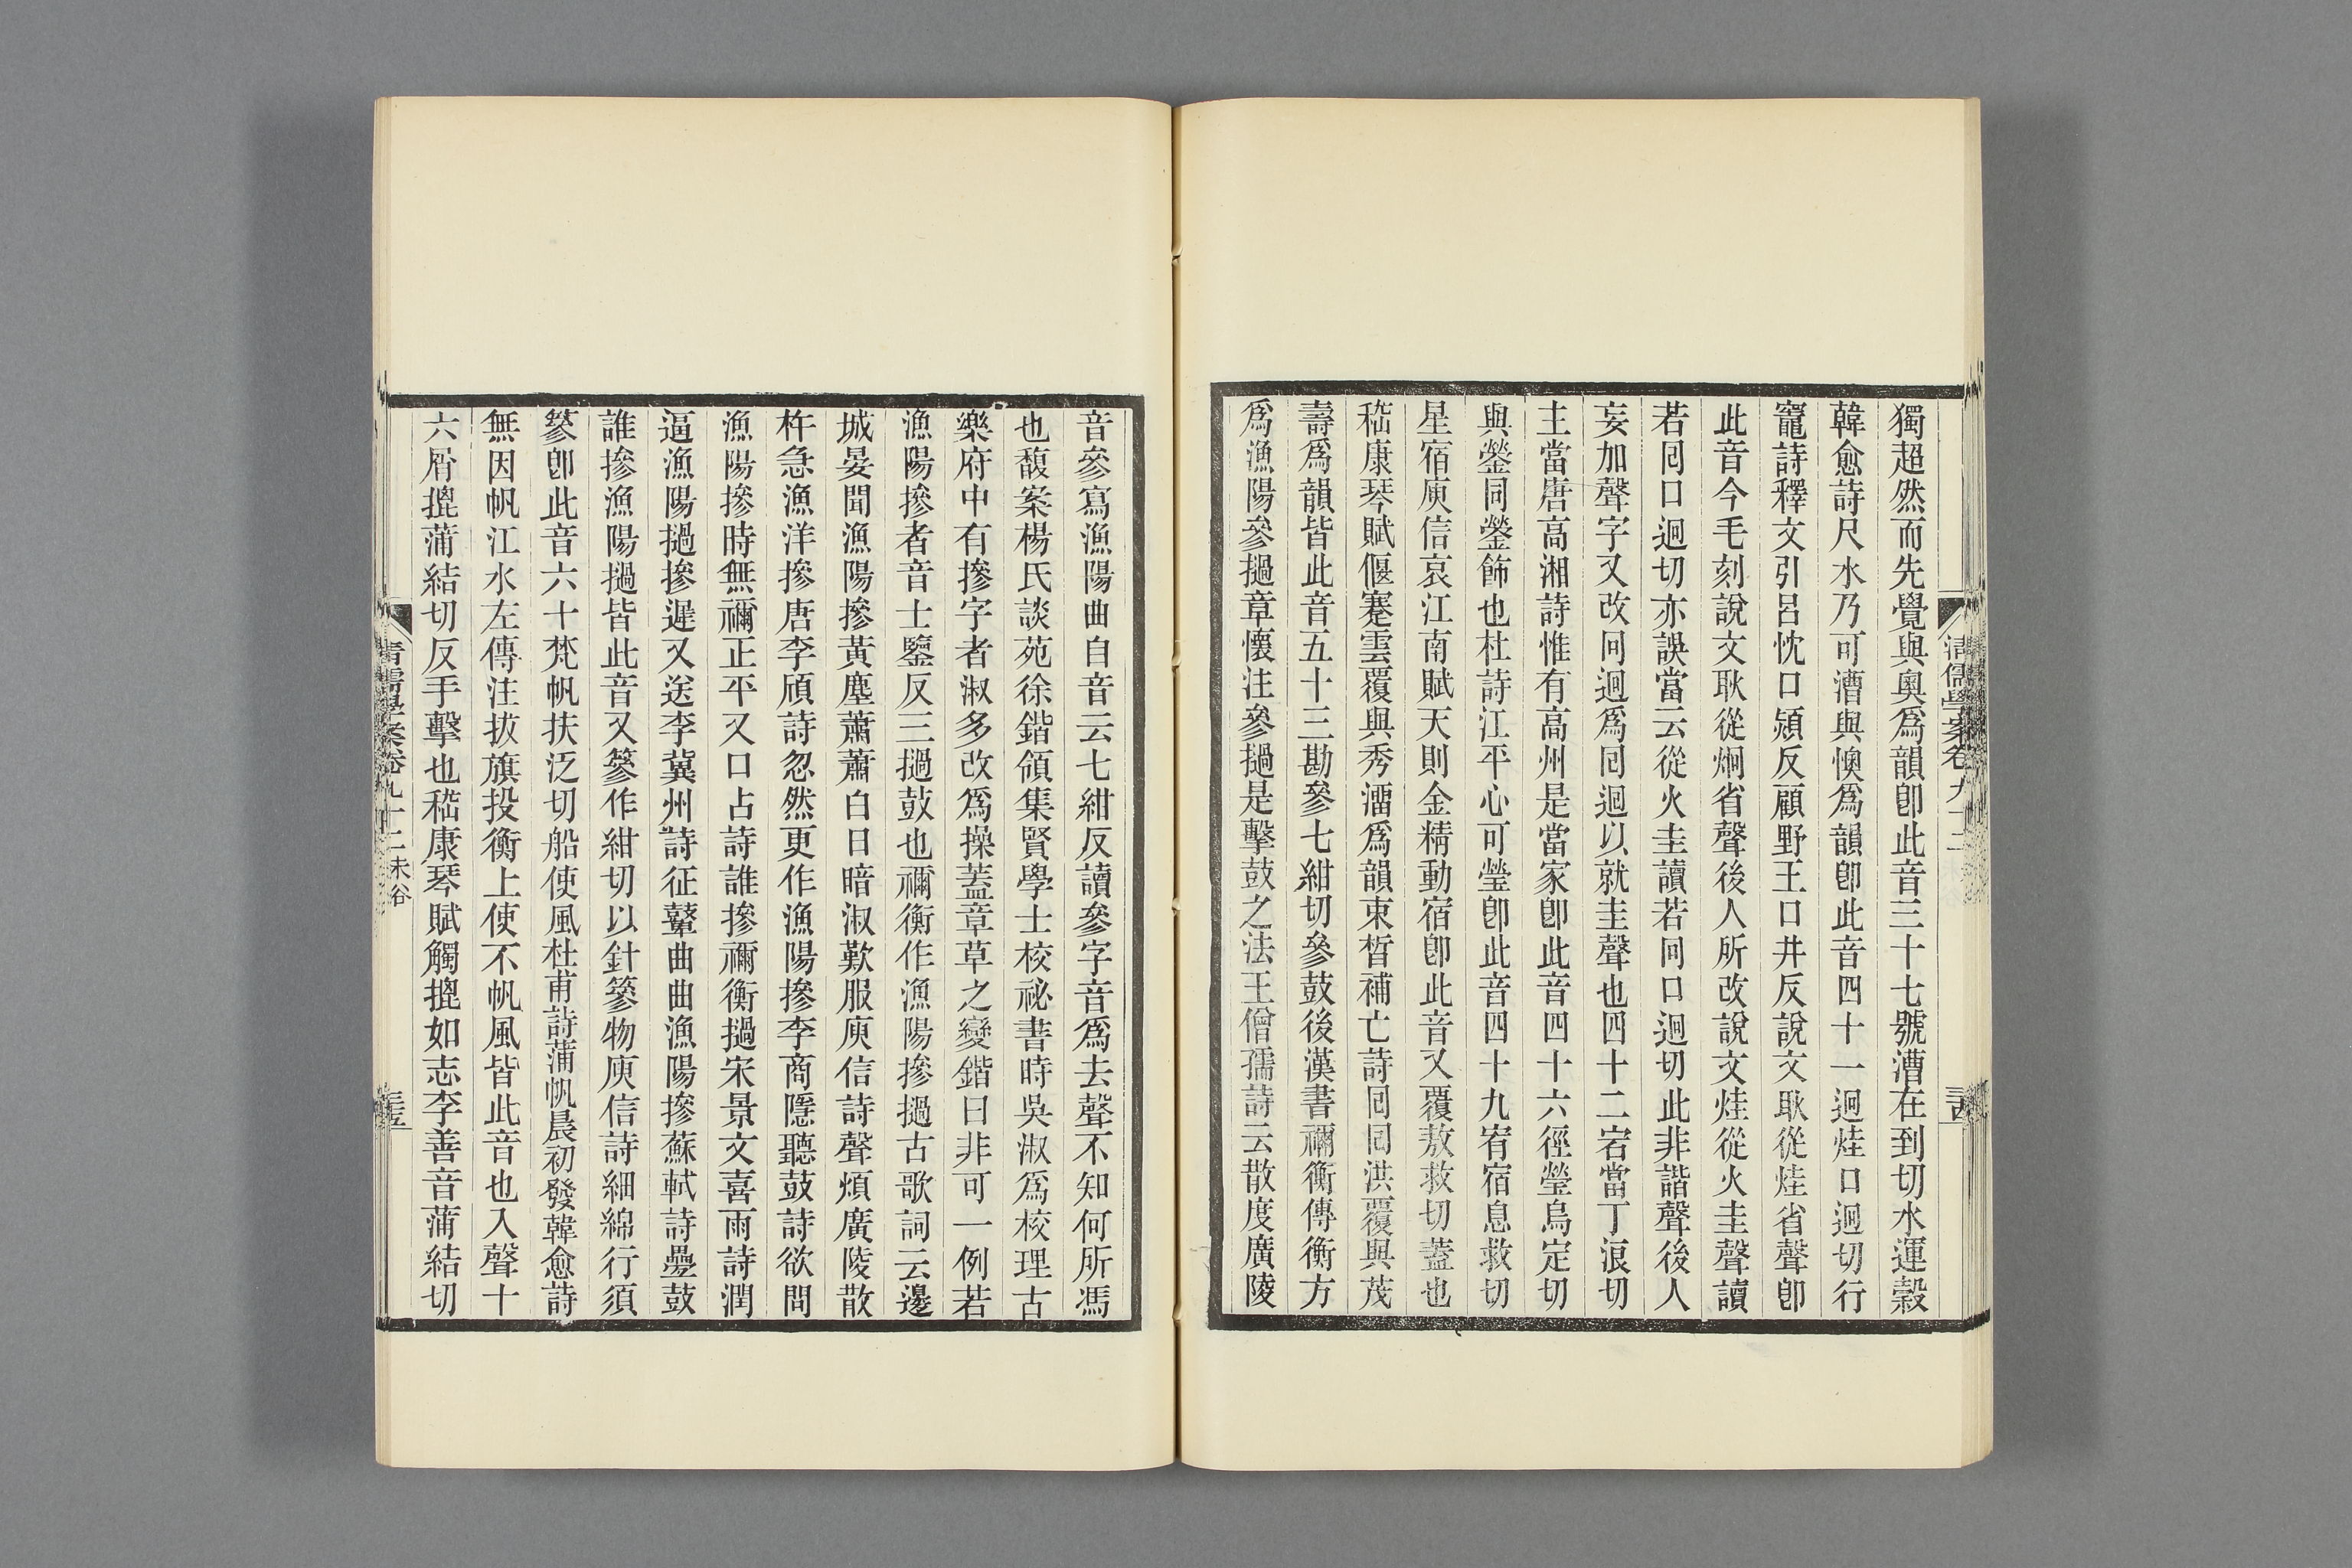 獨超然而先覺與奧爲韻卽此音三十七號漕在到切水運穀
韓愈詩尺水乃可漕與懊爲韻卽此音四十一迥烓口迥切行
竈詩釋文引呂忱口熲反顧野王口井反說文耿從烓省聲卽
此音今毛刻說文耿從炯省聲後人所改說文烓從火圭聲讀
若冋口迥切亦誤當云從火圭讀若冋口迥切此非諧聲後人
妄加聲字又改冋迥爲冋迴以就圭聲也四十二宕當丁浪切
主當唐高湘詩惟有高州是當家卽此音四十六徑瑩烏定切
與鎣同鎣飾也杜詩江平心可瑩卽此音四十九宥宿息救切
星宿庾信哀江南賦天則金精動宿卽此音又覆敖救切蓋也
嵇康琴賦偃蹇雲覆與秀澑爲韻束晳補亡詩囘囘洪覆與茂
壽爲韻皆此音五十三勘參七紺切參鼓後漢書禰衡傳衡方
爲漁陽參撾章懷注參撾是擊鼓之法王僧孺詩云散度廣陵
清儒學案卷九十二
音參寫漁陽曲自音云七紺反讀參字音爲去聲不知何所馮
也馥案楊氏談苑徐鍇領集賢學士校祕書時吳淑爲校理古
樂府中有摻字者淑多改爲操蓋章草之變鍇曰非可一例若
漁陽摻者音士鑒反三撾鼓也禰衡作漁陽摻撾古歌詞云邊
城晏聞漁陽摻黃塵蕭蕭白日暗淑歎服庾信詩聲煩廣陵散
杵急漁洋摻唐李頎詩忽然更作漁陽摻李商隱聽鼓詩欲問
漁陽摻時無禰正平又口占詩誰摻禰衡撾宋景文喜雨詩潤
逼漁陽撾摻遲又送李冀州詩征鼙曲曲漁陽摻蘇軾詩疊鼓
誰摻漁陽撾皆此音又篸作紺切以針篸物庾信詩細綿行須
篸卽此音六十梵帆扶泛切船使風杜甫詩蒲帆晨初發韓愈詩
無因帆江水左傳注拔旗投衡上使不帆風皆此音也入聲十
六屑㨢蒲結切反手擊也嵇康琴賦觸㨢如志李善音蒲結切
清儒學案卷九十二 未谷